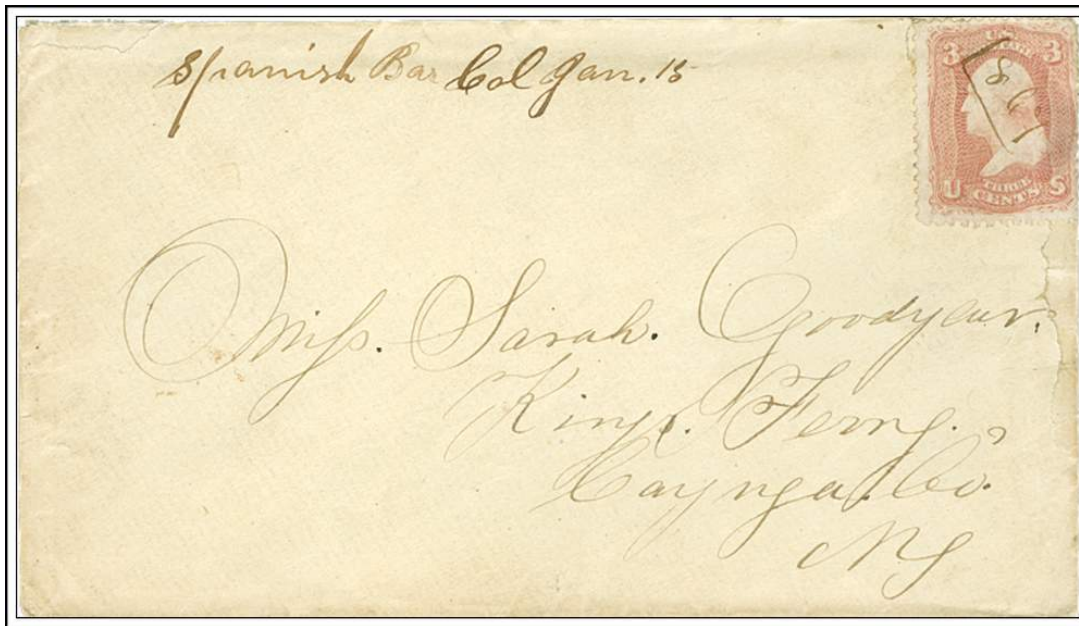 Spanish Bar Col Jan. 15
3 3
U S
THREE
CENTS
Miss. Sarah. Goodyear.
Kings. Ferry.
Cayuga. Co.
NY